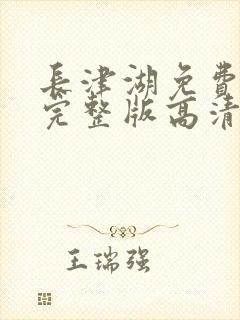 長津湖免費
完整版高清
王瑞强